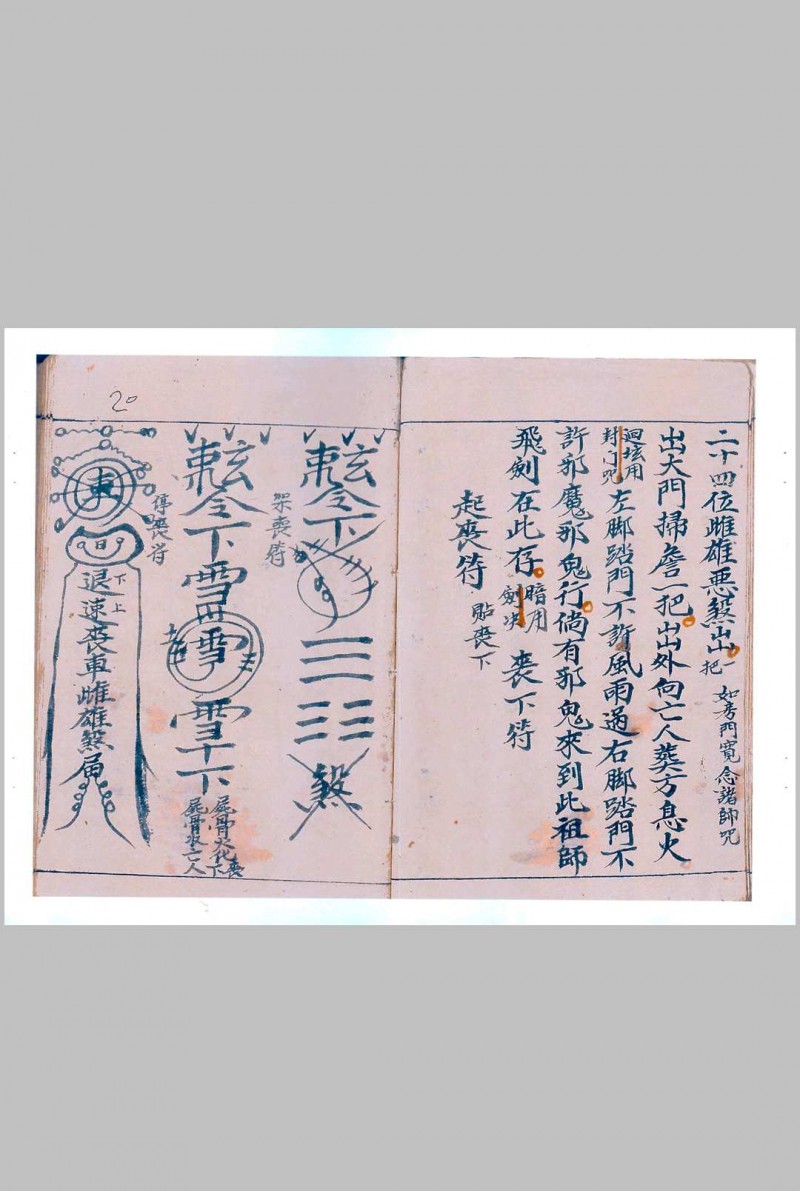 二十四位雌雄惡煞出一把 如房門寬念諸師咒
出大門掃詹一把出外向亡人葬方息火
迴垓用封门咒 左脚踏門不許風雨過右脚踏門不
許邪魔邪鬼行倘有邪鬼來到此祖師
飛劍在此存暗用劍决 喪下符
起喪符 貼喪下
勅令下 煞
架喪符
勅令下雪雪雪下 屍骨火化喪下 屍骨水亡人
停喪符
退下上速喪車雌雄煞局
20